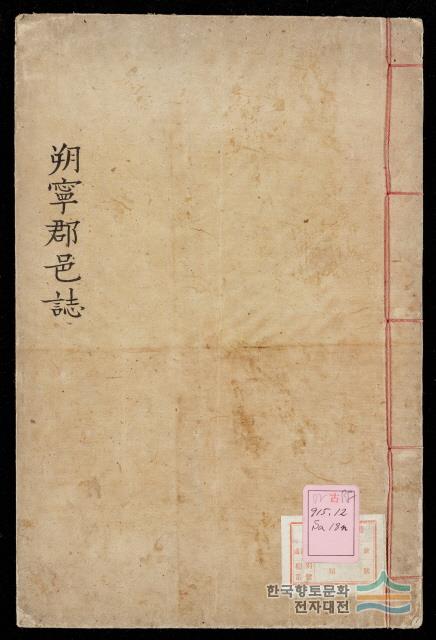 朔寧郡邑誌
古
915.12
Sa18n
한국향토문화
전자대전